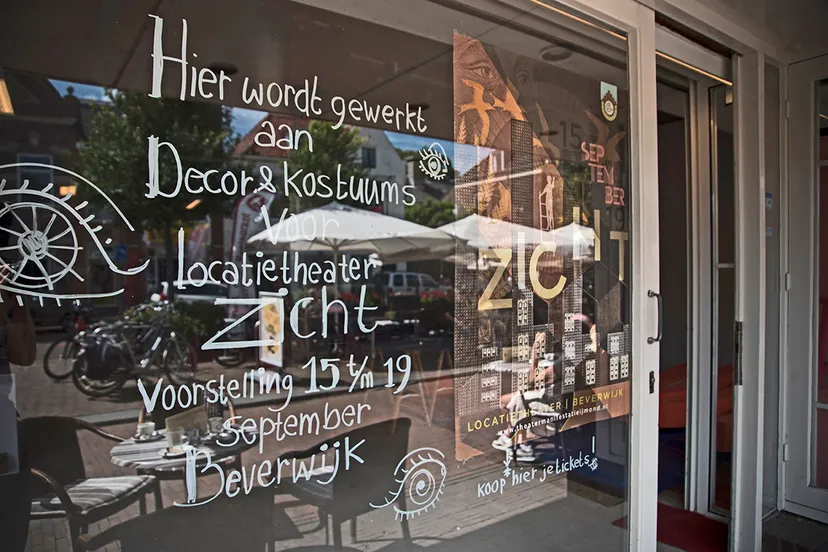 Hier wordt gewerkt
aan
Decor & Kostuums
voor
Locatietheater
Zicht
Voorstelling 15 t/m 19
september
Beverwijk
15
SEP
TEM
BER
19
ZICHT
LOCATIETHEATER | BEVERWIJK
www.theatermanifestatieijmond.nl
koop hier je tickets!